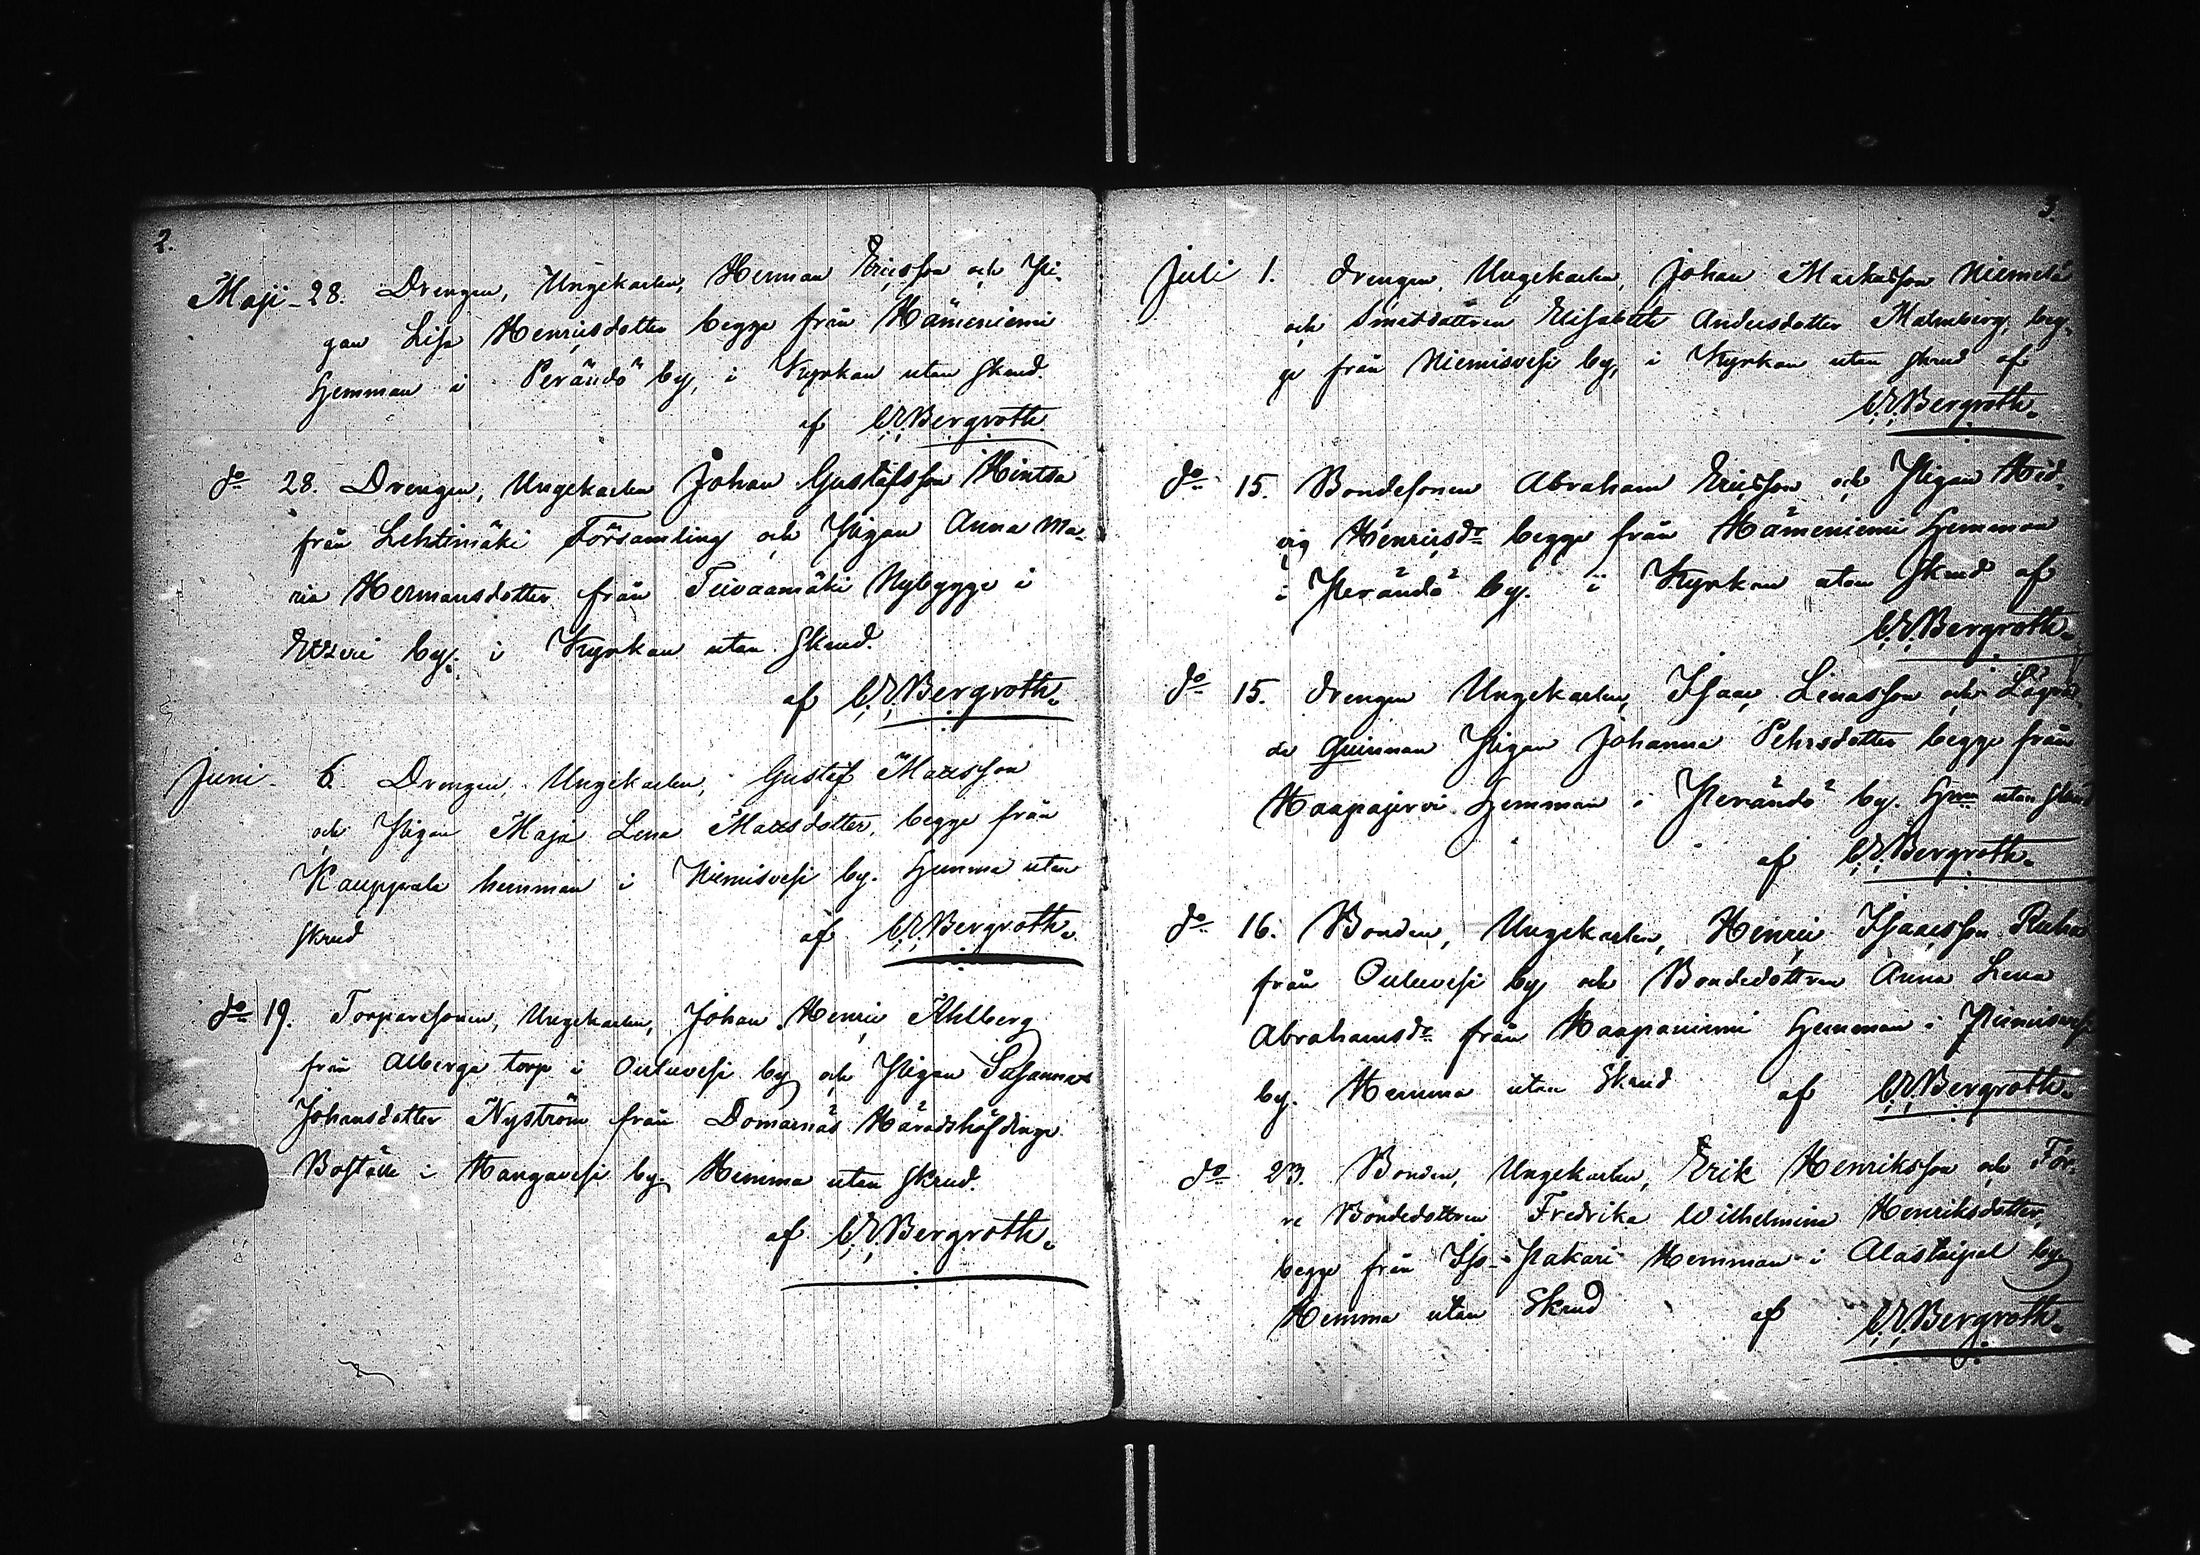 2.
Maji 28. Drengen, Ungekarlen, Herman Ericsson och Pi-
gan Lisa Henricsdotter begge från Hämeniemi
Hemman i Perändö by, i Kyrkan utan skrud.
af C.E.Bergroth.
do 28. Drengen, Ungekarlen Johan Gustafsson Hintsa
från Lehtimäki Församling och Pigan Anna Ma-
ria Hermansdotter från Teivaamäki Nybygge i
Etzeri by. i Kyrkan utan Skrud.
af C.E.Bergroth.
Juni 6. Drengen, Ungekarlen, Gustaf Mattsson
och Pigan Maja Lena Mattsdotter, begge från
Kauppala hemman i Niemisvesi by. Hemma utan
skrud af C.E.Bergroth.
do 19. Torparesonen, Ungekarlen, Johan Henric Ahlberg
från Alberga torp i Ouluvesi by och Pigan Susanna
Johansdotter Nyström från Domarnäs Häradshöfdinge
Boställe i Hangavesi by. Hemma utan skrud.
af C.E.Bergroth.
3.
Juli 1. Drengen, Ungekarlen, Johan Markusson Niemelä
och Smedsdottren Elisabeth Andersdotter Malmberg, beg-
ge från Niemisvesi by, i Kyrkan utan skrud af
C.E.Bergroth.
do 15. Bondesonen Abraham Ericsson och Pigan Hed-
vig Henricsdr begge från Hämeniemi Hemman
i Perändö by. i Kyrkan utan skrud af
C.E.Bergroth.
do 15. Drengen Ungekarlen, Isaac Lenasson och Lägrá-
de Qvinnan Pigan Johanna Pehrsdotter begge från
Haapajervi Hemman i Perändö by. Hma utan skrud
af C.E.Bergroth.
do 16. Bonden, Ungekarlen, Henric Isaacsson
från Ouluvesi by och Bondedottren Anna Lena
Abrahamsdr från Haapaniemi Hemman i Niemisvesi
by. Hemma utan Skrud af C.E.Bergroth.
do 23. Bonden, Ungekarlen, Erik Henriksson och För-
re Bondedottren Fredrika Wilhelmina Henriksdotter,
begge från Iso-Pakari Hemman i Alastaipal by
Hemma utan Skrud af C.E.Bergroth.